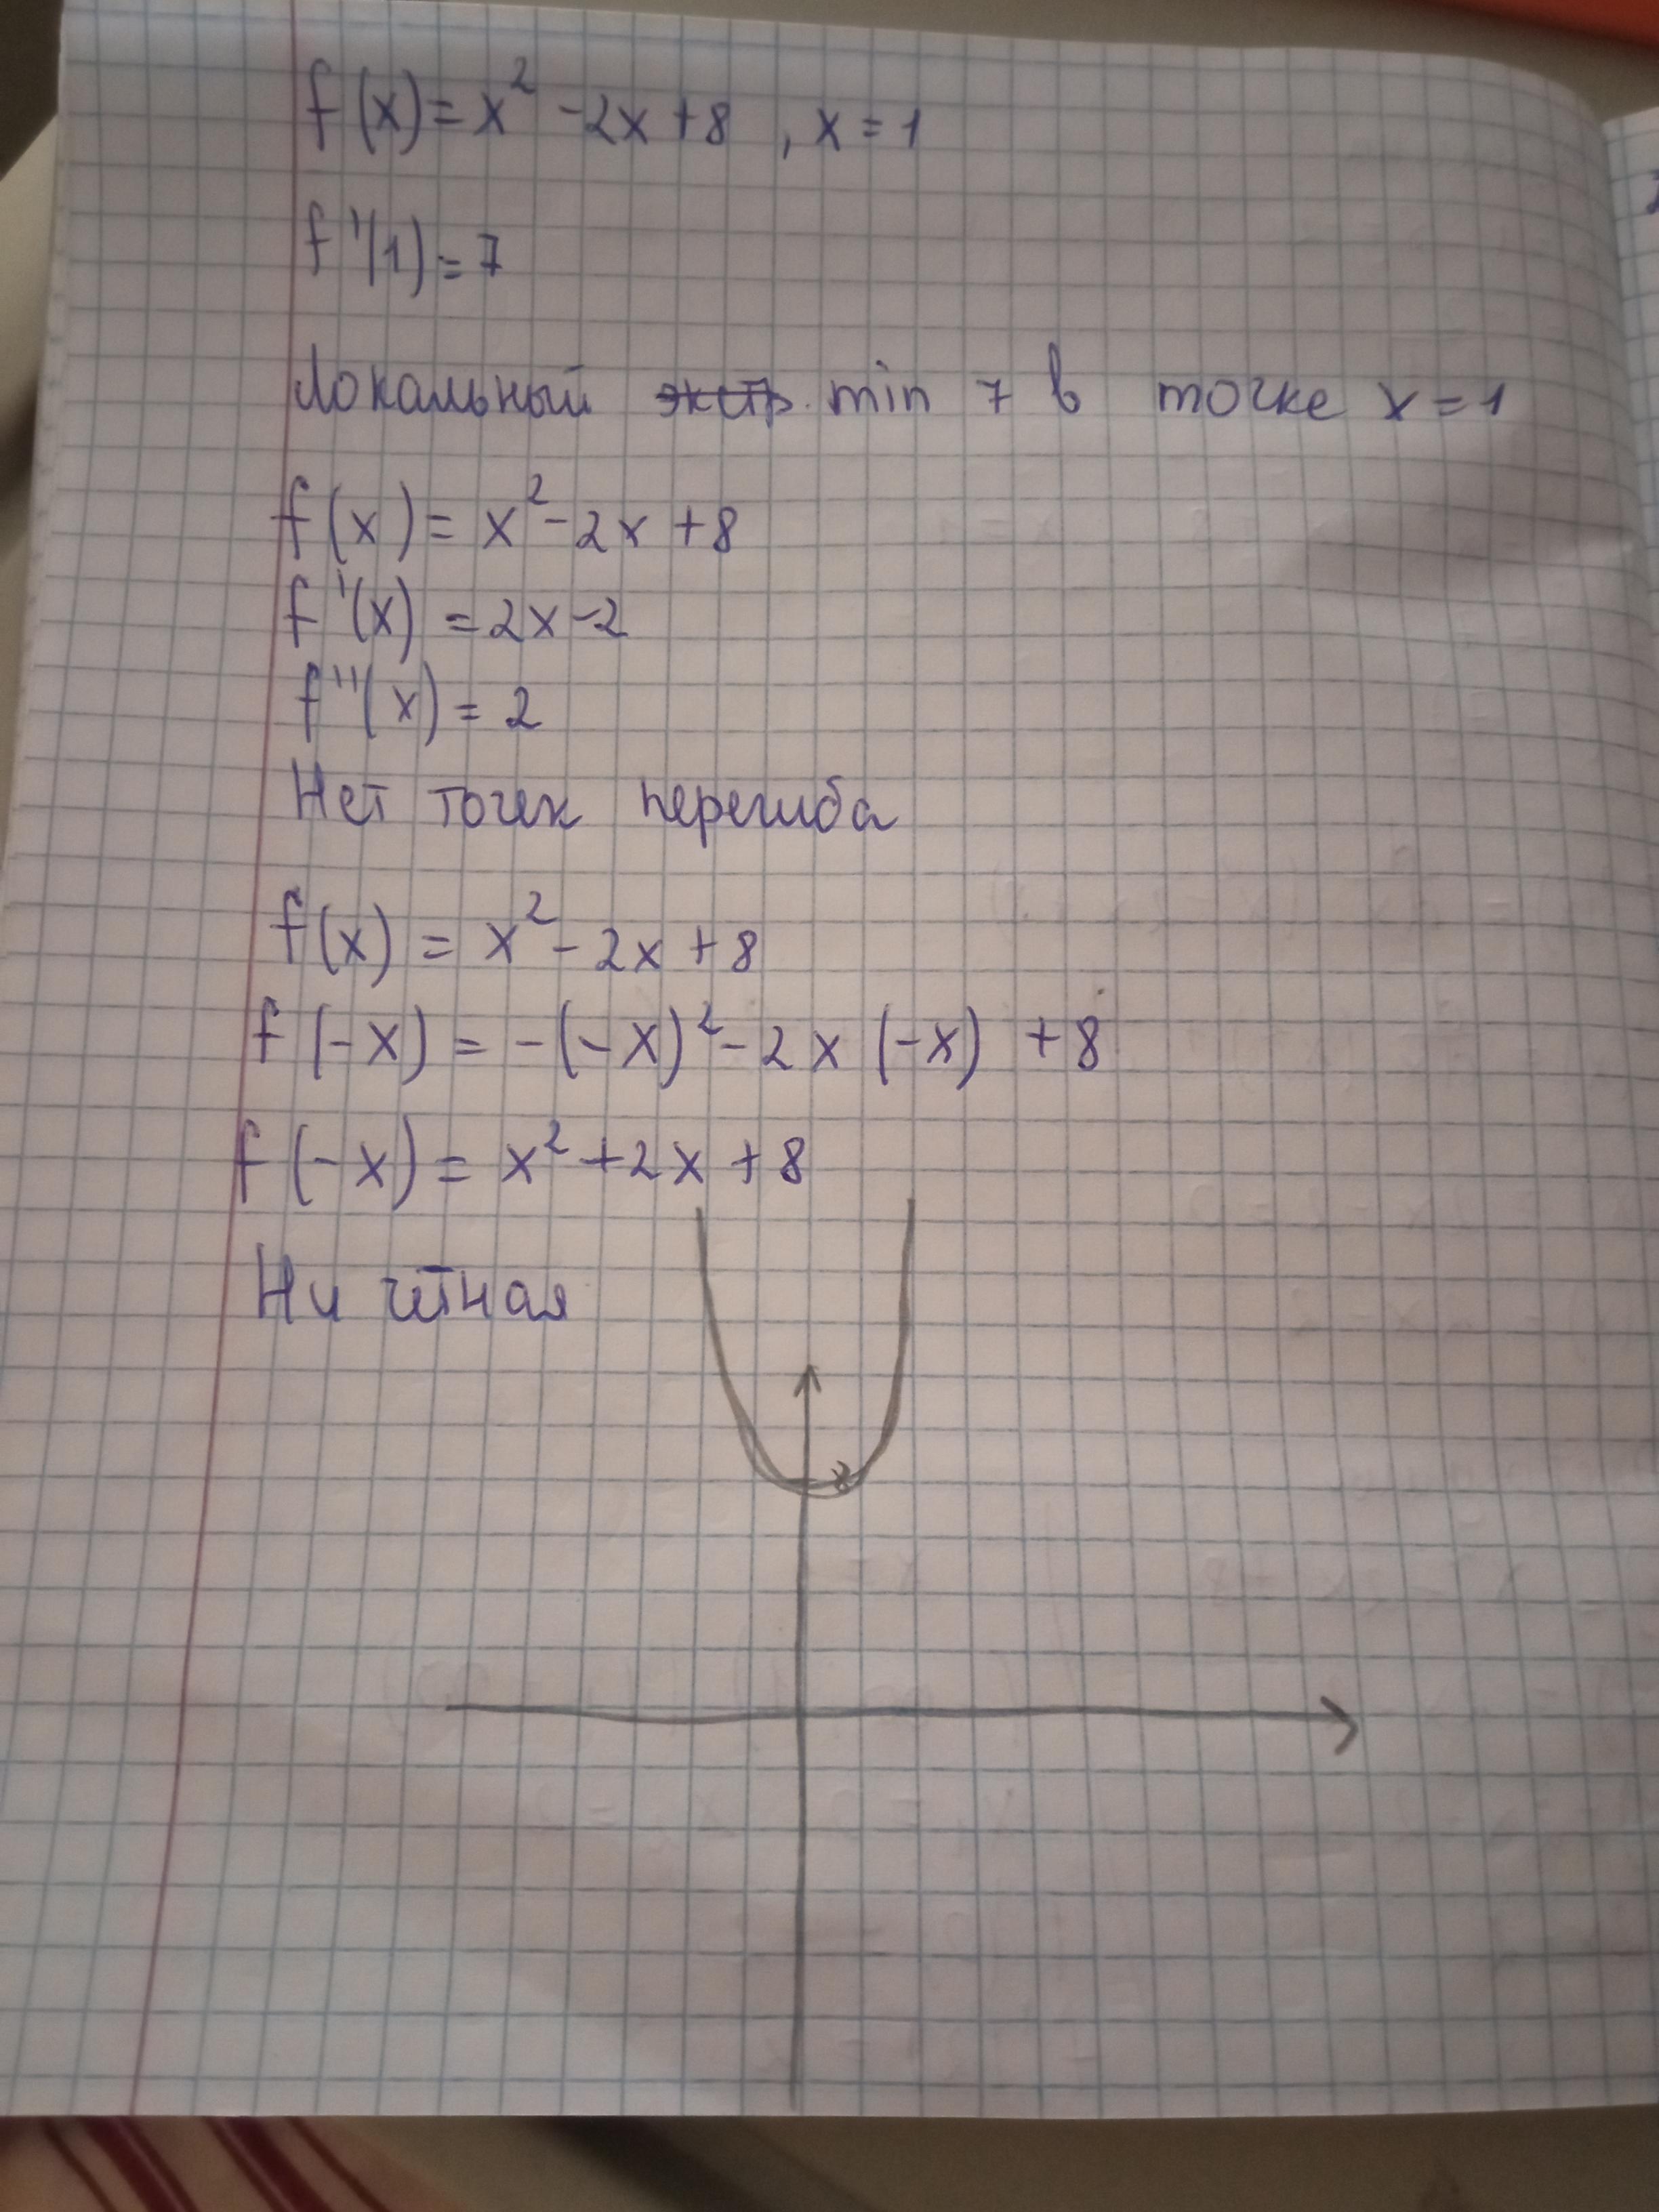 f(x) = x² - 2x + 8 , x = 1
f'(1) = 7
Локальный экстр. min 7 в точке x = 1
f(x) = x² - 2x + 8
f'(x) = 2x - 2
f''(x) = 2
Нет точек перегиба
f(x) = x² - 2x + 8
f(-x) = -(-x)² - 2x (-x) + 8
f(-x) = x² + 2x + 8
Ни чётная
8